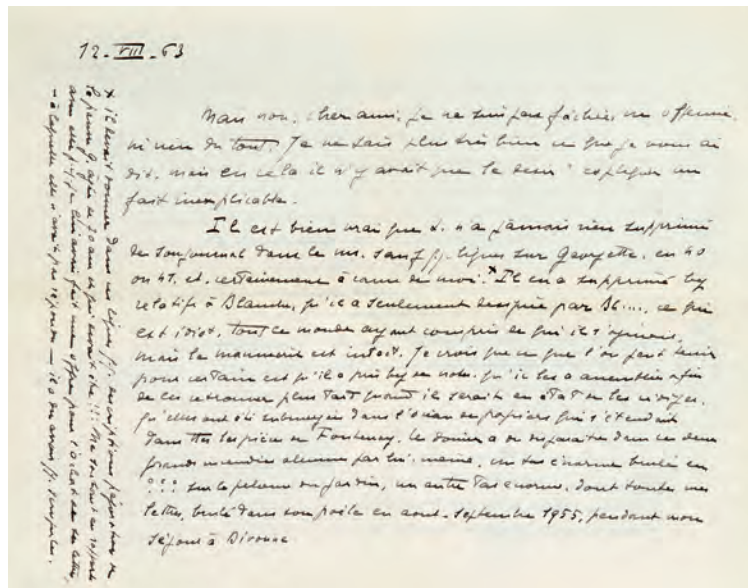 12-VIII-63
Mais non, cher ami, je ne suis pas fâchée, ni offensée,
ni rien du tout. Je ne sais plus très bien ce que je vous ai
dit, mais en cela il n'y avait que le désir d'expliquer un
fait inexplicable.
Il est bien vrai que L. n'a jamais rien supprimé
de son journal dans le ms. sauf qq. lignes sur Georgette, en 40
ou 41, et, certainement à cause de moi.* Il en a supprimé
relatifs à Blanche, qu'il a seulement désignée par Bl...., ce qui
est idiot, tout le monde ayant compris de qui il s'agissait,
mais la manuscrit est intact. Je crois que ce que l'on peut tenir
pour certain est qu'il a pris des notes, qu'il les a amassées afin
de les retrouver plus tard quand il serait en état de les rédiger,
qu'elles ont été submergées dans l'océan de papiers qui s'étendait
dans ttes les pièces de Fontenay. Le dossier a dû disparaître dans ces deux
grands incendies allumés par lui-même, un tas énorme brûlé en
??? sur la pelouse du jardin, un autre tas énorme, dont toutes mes
lettres, brûlé dans son poêle en août-septembre 1955, pendant mon
séjour à Divonne
* Il devait donner dans ces lignes qq. descriptions
la jeune G. après
à laquelle elle n'avait pas répondu — il a du avoir qq. scrupules.